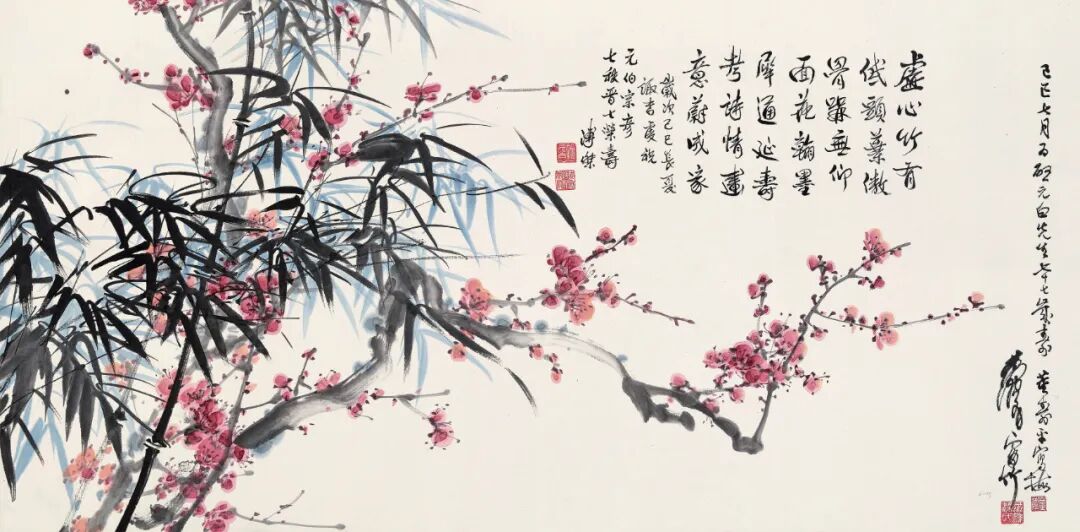 己巳七月为啟元白先生七十七歲壽 董壽平寫梅
寫竹
虛心竹有
低頭葉傲
骨無仰
面花翰墨
犀通延壽
考詩情畫
意蔚成家
歲次己巳長夏
謹書虔祝
元伯宗
七秩晉七榮壽
溥傑